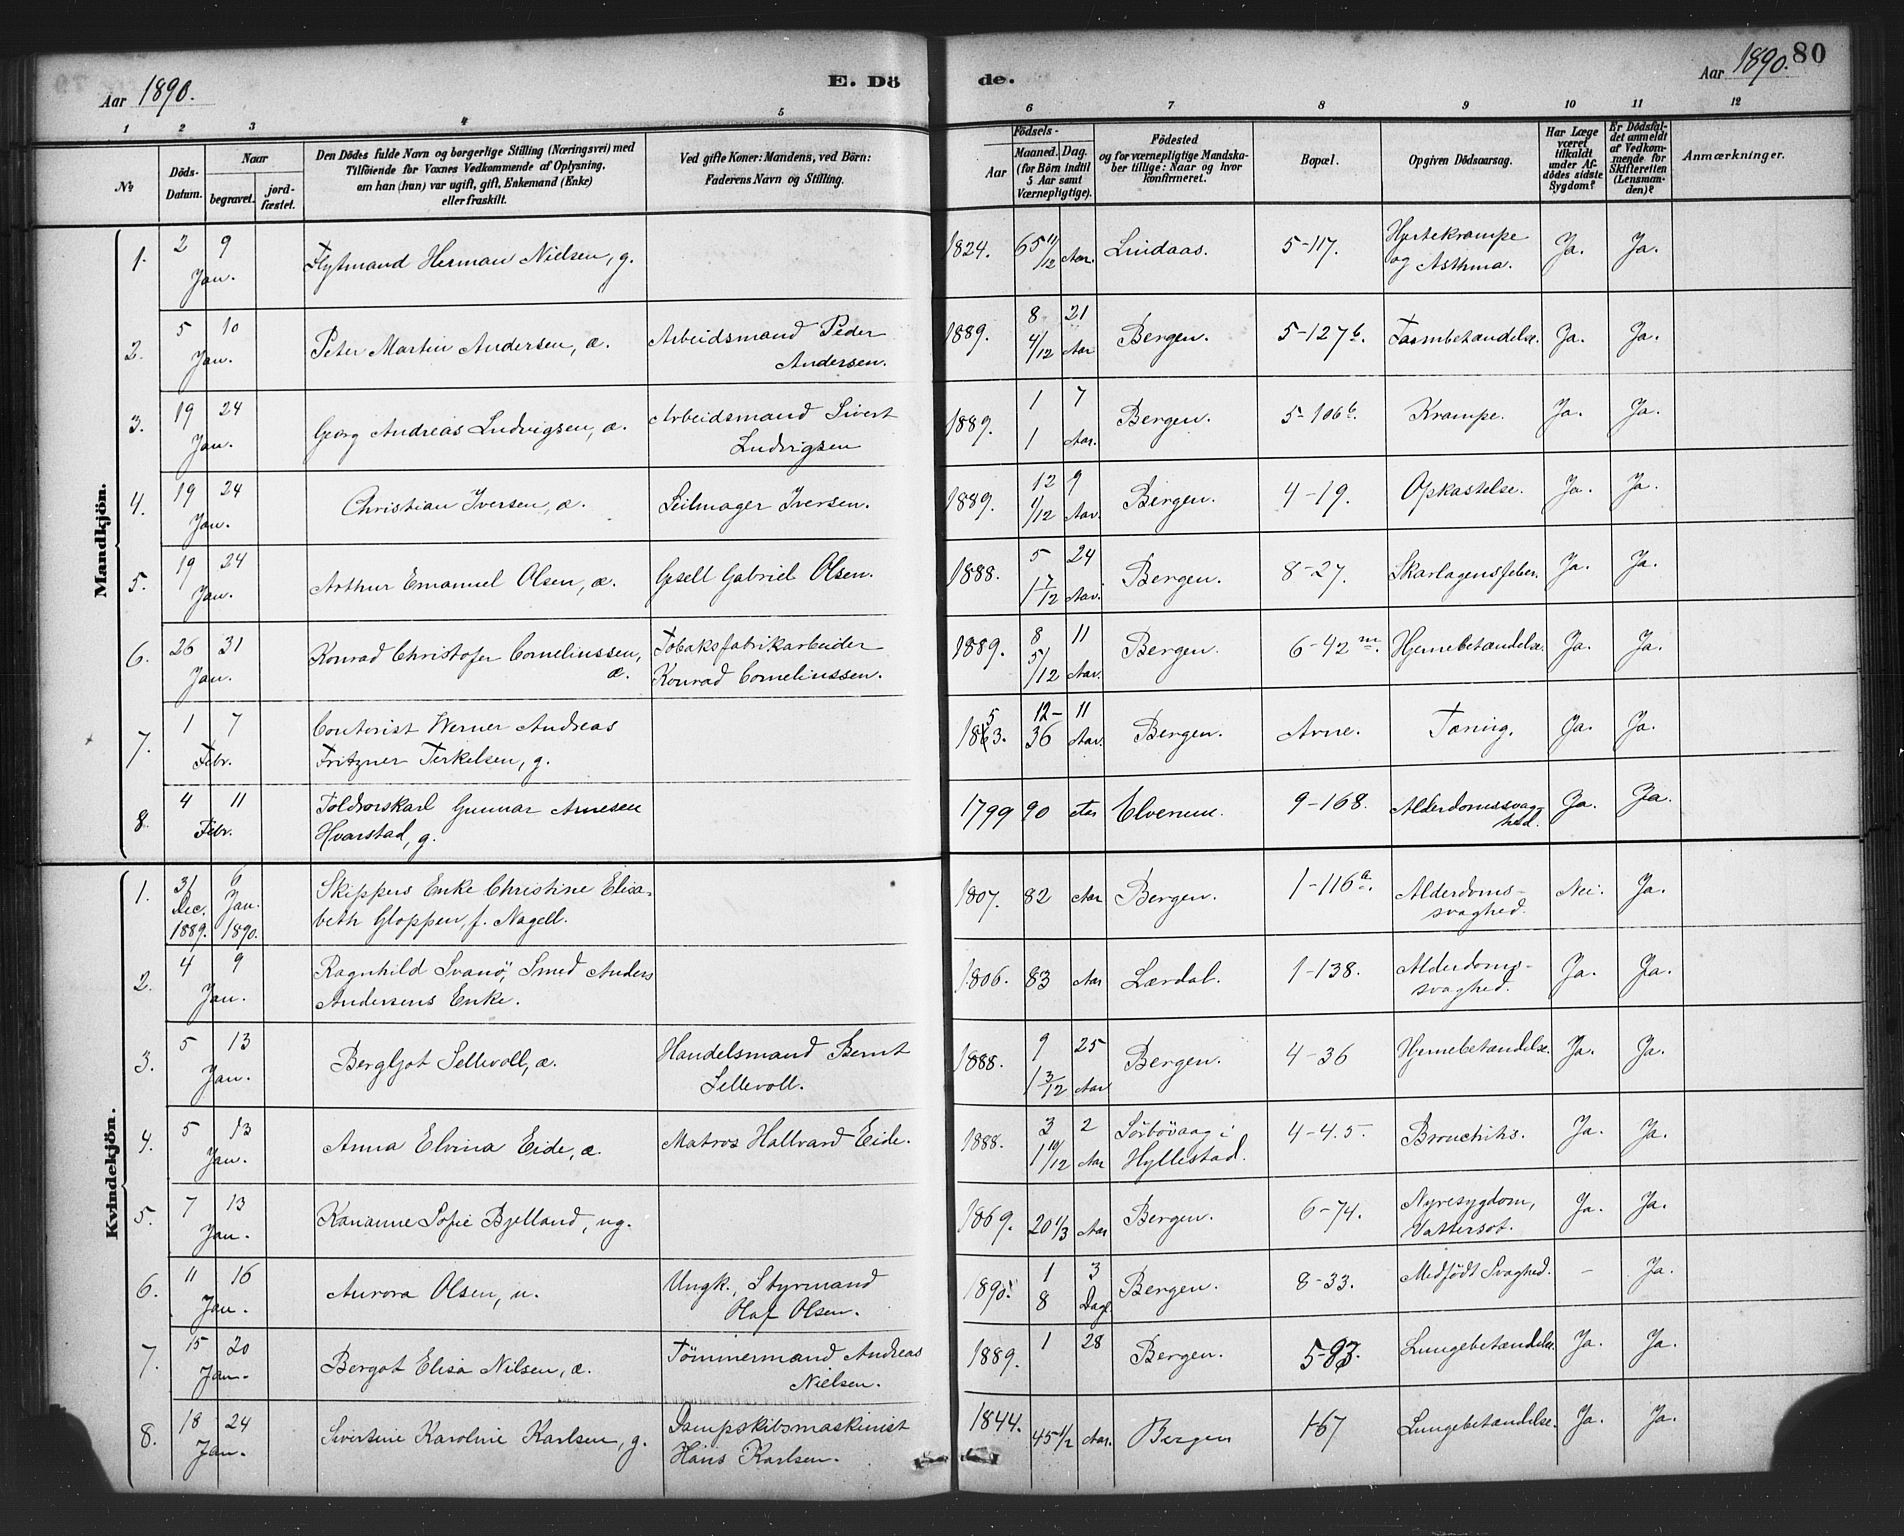 Aar 1890.
E. Dö
de.
Aar 1890.
80
1 2 3 4 5 6 7 8 9 10 11 12
№
Döds-Datum.
Naar
begravet.
jord-fæstet.
Den Dödes fulde Navn og borgerlige Stilling (Næringsvei) med
Tilföiende for Voxnes Vedkommende af Oplysning,
om han (hun) var ugift, gift, Enkemand (Enke)
eller fraskilt.
Ved gifte Koner: Mandens, ved Börn:
Faderens Navn og Stilling.
Aar
Födsels-
Maaned. Dag.
(for Börn indtil
5 Aar samt
Værnepligtige).
Födested
og for værnepligtige Mandska-
ber tillige: Naar og hvor
konfirmeret.
Bopæl.
Opgiven Dödsaarsag.
Har Læge
været
tilkaldt
under Af-
dödes sidste
Sygdom?
Er Dödsfal-
det anmeldt
af Vedkom-
mende for
Skifteretten
(Lensman-
den)?
Anmærkninger.
Mandkjön.
1. 2 9 Jan. Flytmand Herman Nielsen, g. 1824. 65 11/12 Aar. Lindaas. 5-117. Hjertekrampe og Asthma. Ja. Ja.
2. 5 10 Jan. Peter Martin Andersen, æ. Arbeidsmand Peder Andersen. 1889. 8 21 4/12 Aar Bergen. 5-127b. Tarmbetændelse. Ja. Ja.
3. 19 24 Jan. Georg Andreas Ludvigsen, æ. Arbeidsmand Sivert Ludvigsen 1889. 1 7 1 Aar. Bergen. 5-106b. Krampe. Ja. Ja.
4. 19 24 Jan. Christian Iversen, æ. Seilmager Iversen. 1889. 12 9 1/12 Aar. Bergen. 4-19. Opkastelse. Ja. Ja.
5. 19 24 Jan. Arthur Emanuel Olsen, æ. Gesell Gabriel Olsen. 1888. 5 24 1 7/12 Aar. Bergen. 8-27. Skarlagensfeber. Ja. Ja.
6. 26 31 Jan. Konrad Christofer Corneliussen, æ. Tobaksfabrikarbeider Konrad Corneliussen. 1889. 8 11 5/12 Aar. Bergen. 6-42m. Hjernebetændelse. Ja. Ja.
7. 1 7 Febr. Contorist Werner Andreas Fritzner Terkelsen, g. 1853. 12- 11 36 Aar. Bergen. Arne. Tæring. Ja. Ja.
8. 4 11 Febr. Toldrorskarl Gunnar Arnesen Hvarstad, g. 1799 90 Aar Elverum. 9-168. Alderdomssvaghed. Ja. Ja.
Kvindekjön.
1. 31 Dec. 1889. 6 Jan. 1890. Skippers Enke Christine Elisabeth Gloppen, f. Nagell. 1807. 82 Aar Bergen. 1-116a. Alderdoms-svaghed. Nei. Ja.
2. 4 9 Jan. Ragnhild Svanö, Smed Anders Andersens Enke. 1806. 83 Aar Lærdal. 1-138. Alderdoms-svaghed. Ja. Ja.
3. 5 13 Jan. Bergljot Sellevoll, æ. Handelsmand Bernt Sellevoll. 1888. 9 25 1 3/12 Aar Bergen. 4-36 Hjernebetændelse. Ja. Ja.
4. 5 13 Jan. Anna Elvina Eide, æ. Matros Hallvard Eide. 1888. 3 2 1 10/12 Aar Sörbövaag i Hyllestad. 4-45. Bronchitis. Ja. Ja.
5. 7 13 Jan. Karianne Sofie Bjelland, ug. 1869. 20 1/3 Aar Bergen. 6-74. Nyresygdom, Vattersot. Ja. Ja.
6. 11 16 Jan. Aurora Olsen, u. Ungk., Styrmand Olaf Olsen. 1890. 1 3 8 Dage Bergen. 8-33. Medfödt Svaghed. - Ja.
7. 15 20 Jan. Bergot Elisa Nilsen, æ. Tömmermand Andreas Nielsen. 1889. 1 28 Bergen. 5-93. Lungebetændelse. Ja. Ja.
8. 18 24 Jan. Sivertine Karoline Karlsen, g. Dampskibsmaskinist Hans Karlsen. 1844. 45 1/2 Aar. Bergen 1-67 Lungebetændelse. Ja. Ja.